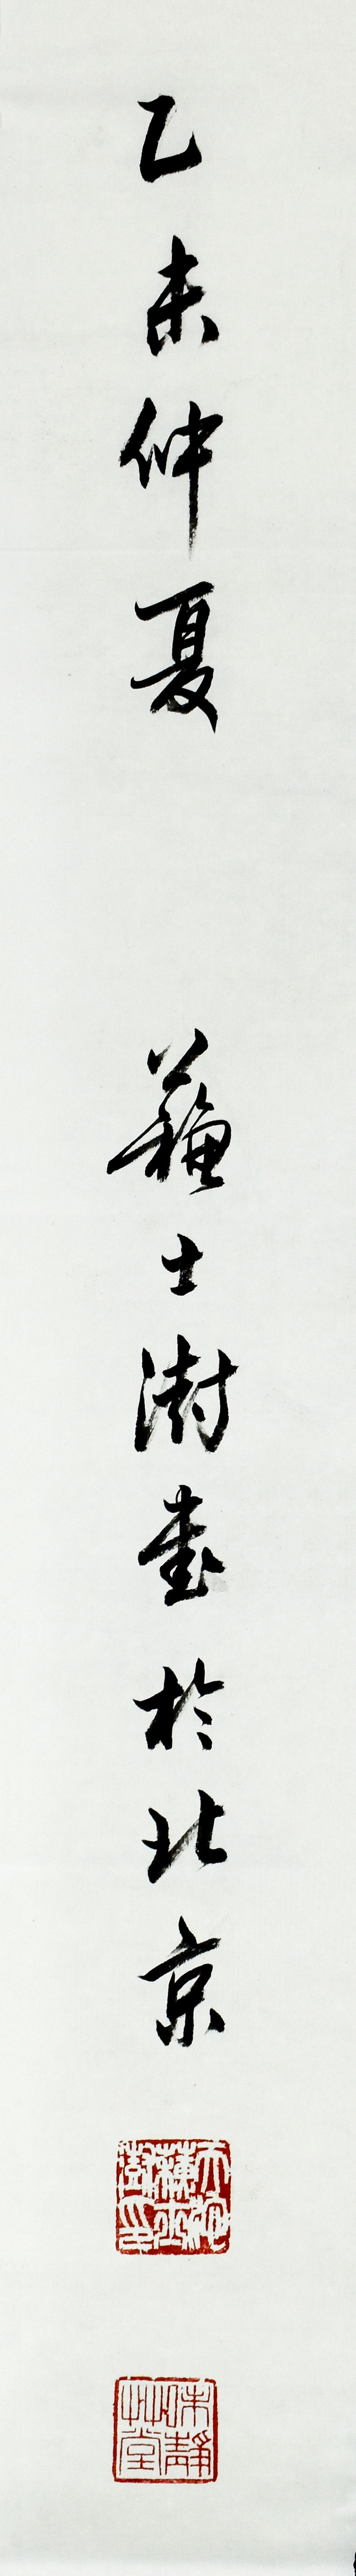 乙未仲夏
蘇士澍書於北京